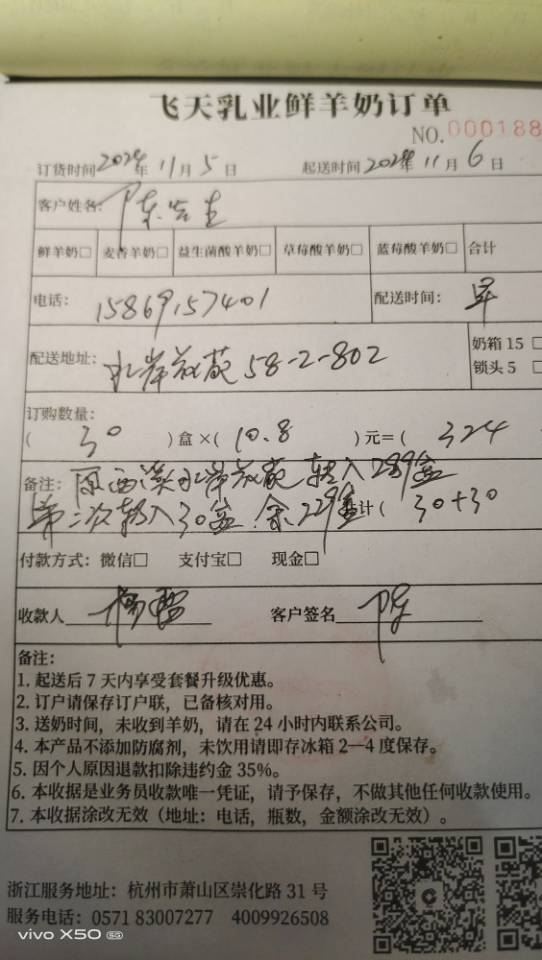 飞天乳业鲜羊奶订单
NO.000188
订货时间2024年11月5日 起送时间2024年11月6日
客户姓名：陈先生
鲜羊奶□ 麦香羊奶□ 益生菌酸羊奶□ 草莓酸羊奶□ 蓝莓酸羊奶□ 合计
电话：15869157401 配送时间：早
配送地址：水岸 58-2-802
奶箱 15 □
锁头 5 □
订购数量：
( 30 )盒×( 10.8 )元=( 324
备注：原西溪水岸 转入289盒
第二次转入30盒.余229盒 总计( 30+30
付款方式：微信□ 支付宝□ 现金□
收款人 客户签名 陈
备注：
1. 起送后 7 天内享受套餐升级优惠。
2. 订户请保存订户联，已备核对用。
3. 送奶时间，未收到羊奶，请在 24 小时内联系公司。
4. 本产品不添加防腐剂，未饮用请即存冰箱 2—4 度保存。
5. 因个人原因退款扣除违约金 35%。
6. 本收据是业务员收款唯一凭证，请予保存，不做其他任何收款使用。
7. 本收据涂改无效（地址：电话，瓶数，金额涂改无效）。
浙江服务地址：杭州市萧山区崇化路 31 号
服务电话：0571 83007277 4009926508
vivo X50 5G